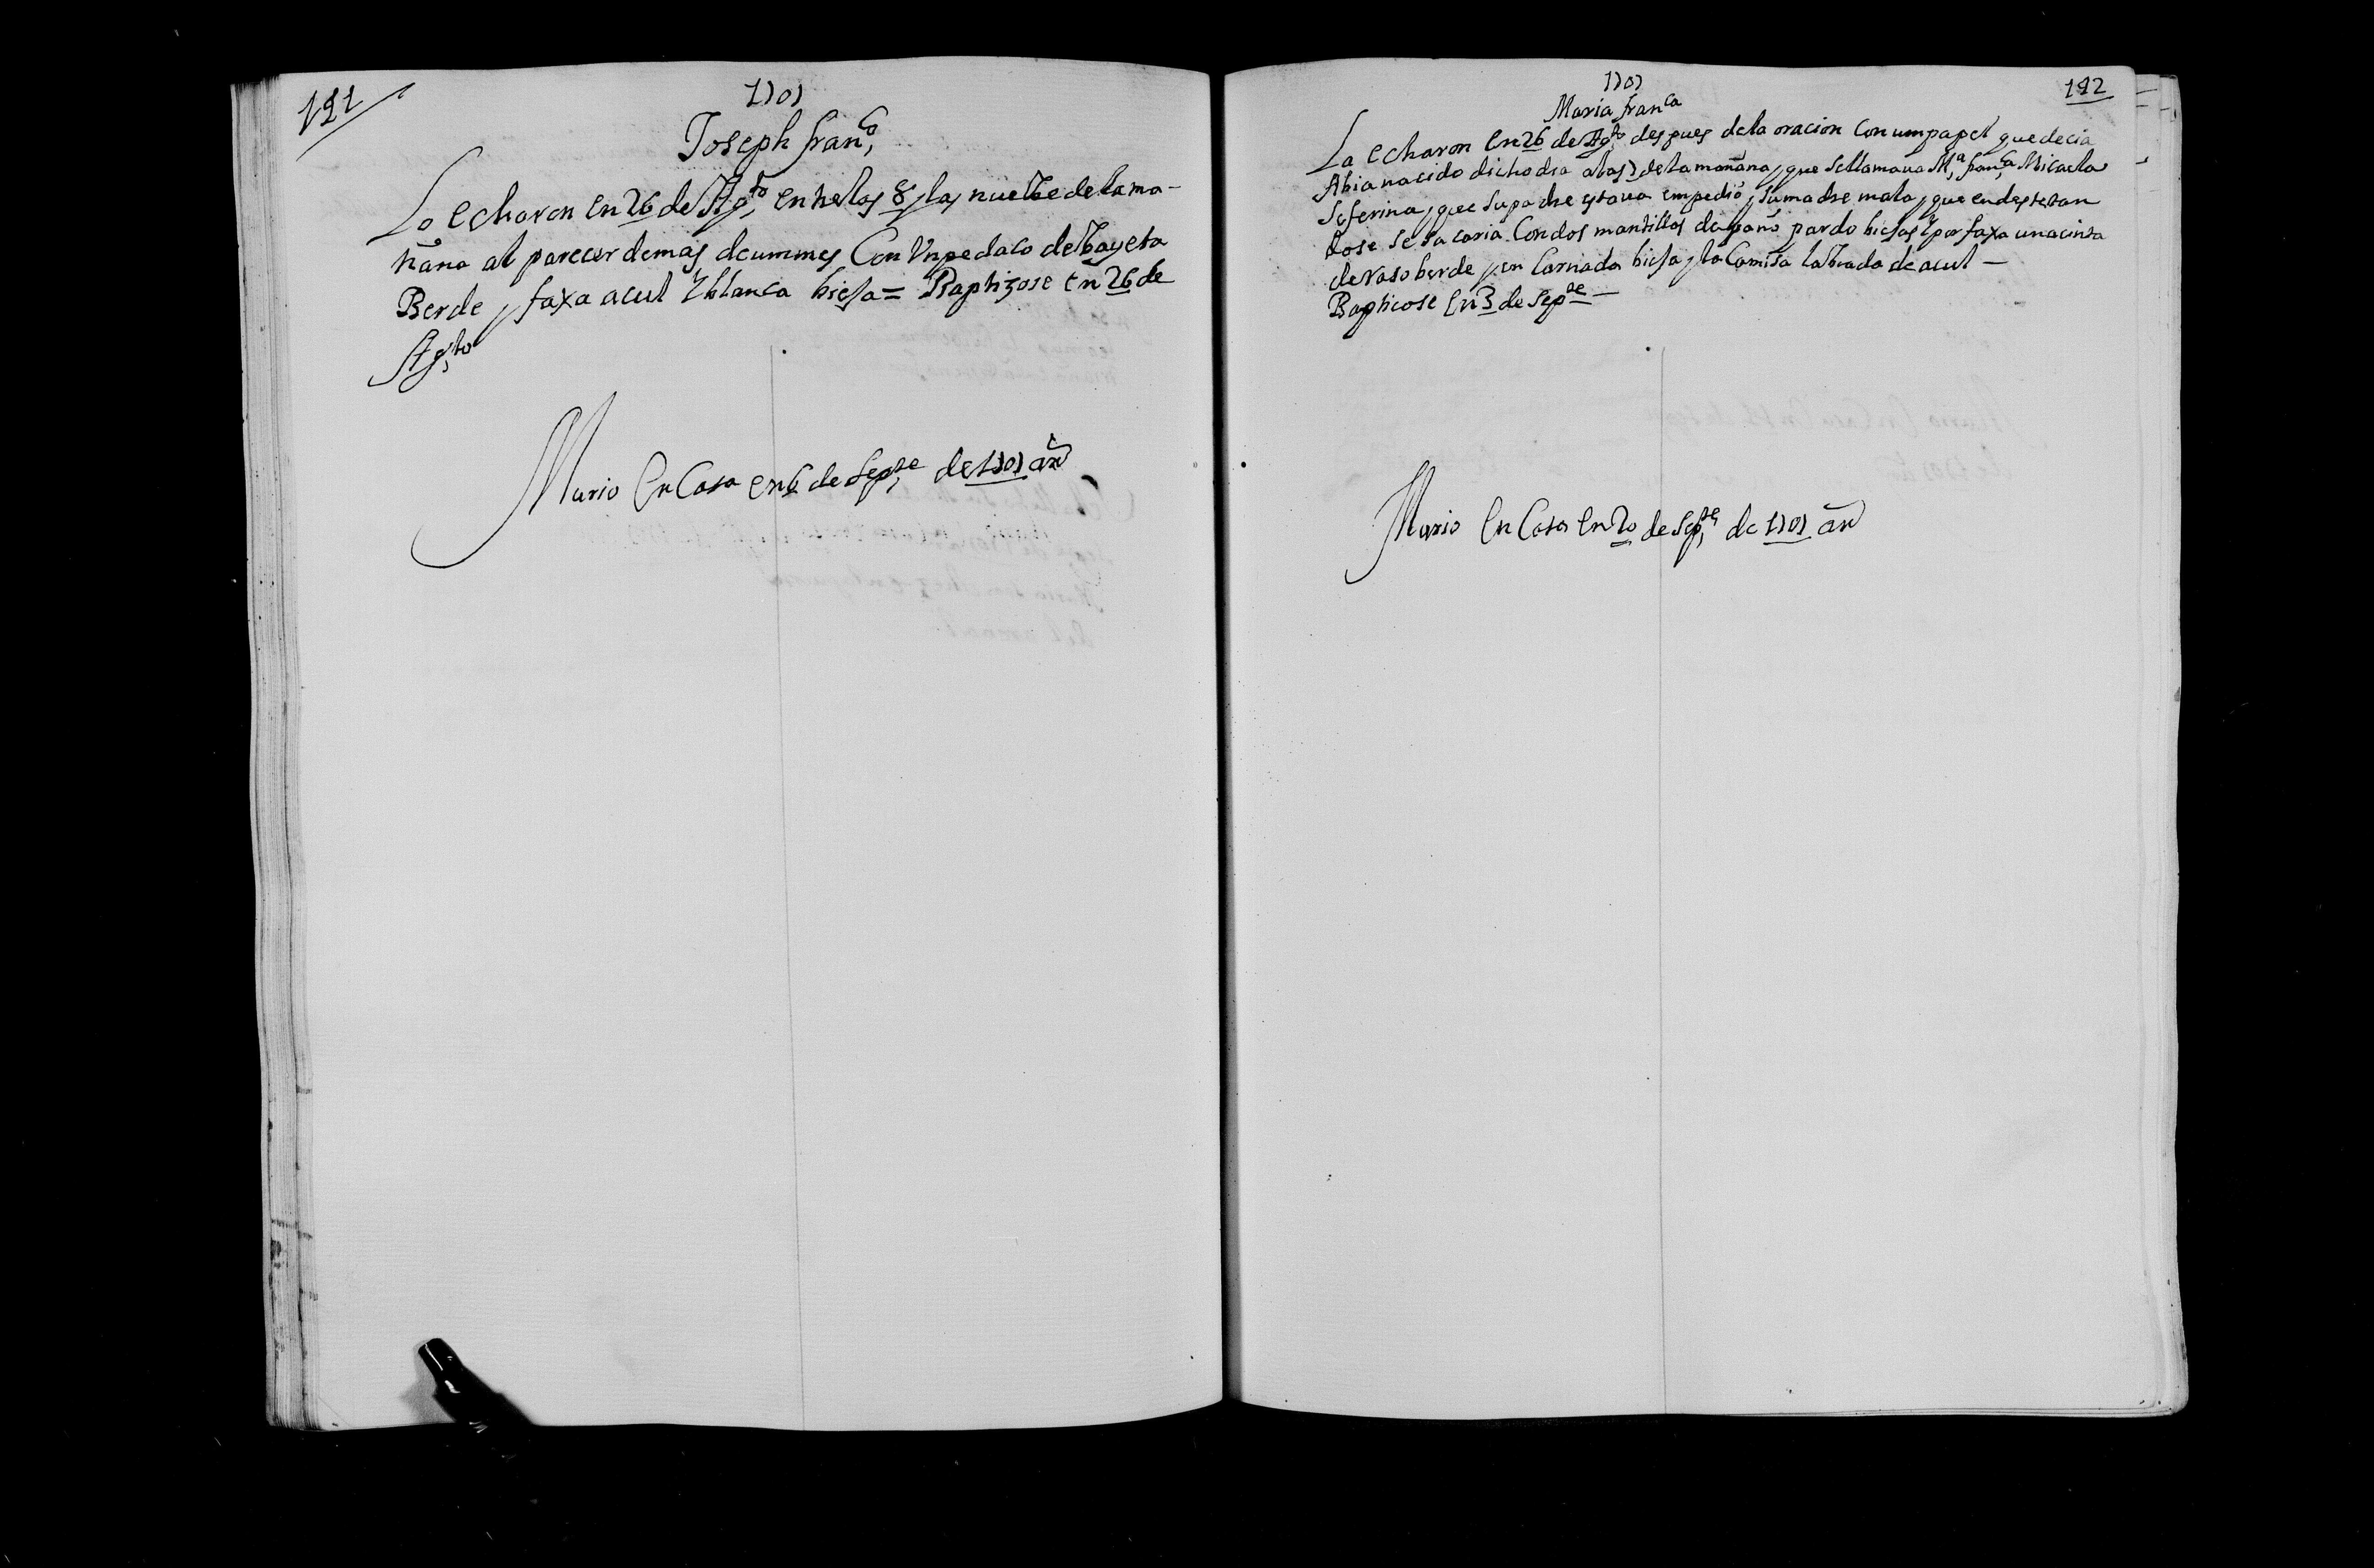 191
1707
Joseph fran.co
Lo echaron en 26 de Ag.to entre las 8 y las nuebe de la ma-
ñana al parecer de mas de un mes Con Un pedaco de bayeta
Berde y faxa acul Y blanca biesa = Baptizose en 26 de
Ag.to
Murio En Casa en 6 de Sep.re de 1707 añ
192
1707
Maria fran.ca
La echaron En 26 de Ag.to despues de la oracion Con um papel que decia
Abia nacido dicho dia a las 7 de la mañana, y que se llamaua M.a fran.ca Micaela
Seferina, y que su padre estaua empedio y su madre mala, y que en destetan
dose se sacaria Con dos mantillas de paño pardo biesas Y por faxa una cinta
de raso berde y en Carnada biesa y la Camisa labrada de acul —
Bapticose En 3 de Sep.re —
Murio En Casa En 20 de Sep.re de 1707 añ